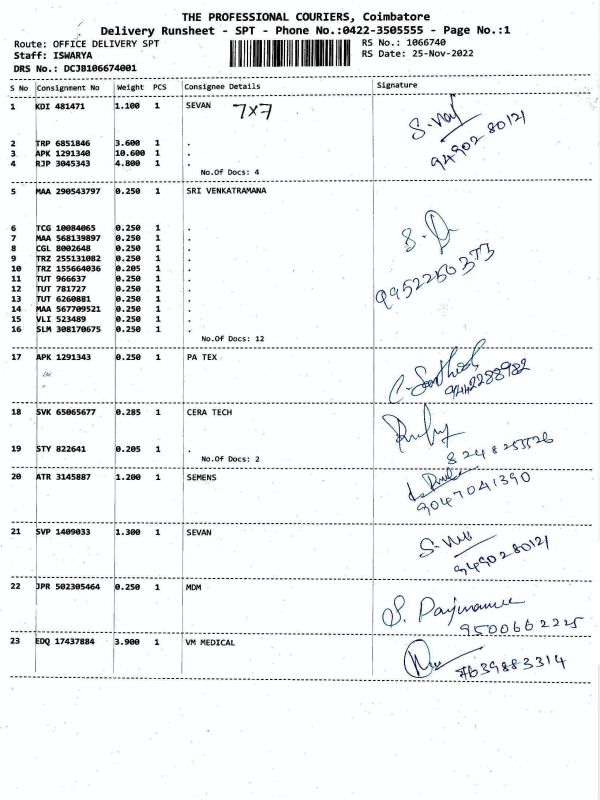 THE PROFESSIONAL COURIERS, Coimbatore
Delivery Runsheet - SPT - Phone No.:0422-3505555 - Page No.:1
Route: OFFICE DELIVERY SPT RS No.: 1066740
Staff: ISWARYA RS Date: 25-Nov-2022
DRS No.: DCJB106674001
S No Consignment No Weight PCS Consignee Details Signature
1 KDI 481471 1.100 1 SEVAN
7x7
9490280121
2 TRP 6851846 3.600 1 .
3 APK 1291340 10.600 1 .
4 RJP 3045343 4.800 1 .
No.Of Docs: 4
5 MAA 290543797 0.250 1 SRI VENKATRAMANA
6 TCG 10084065 0.250 1 .
7 MAA 568139897 0.250 1 .
8 CGL 8002648 0.250 1 .
9 TRZ 255131082 0.250 1 .
10 TRZ 155664036 0.205 1 .
11 TUT 966637 0.250 1 .
12 TUT 781727 0.250 1 .
13 TUT 6260881 0.250 1 .
14 MAA 567709521 0.250 1 .
15 VLI 523489 0.250 1 .
16 SLM 308170675 0.250 1 .
No.Of Docs: 12
9952250373
17 APK 1291343 0.250 1 PA TEX
9442288982
18 SVK 65065677 0.285 1 CERA TECH
19 STY 822641 0.205 1 .
No.Of Docs: 2
8248255526
20 ATR 3145887 1.200 1 SEMENS
9047041390
21 SVP 1409033 1.300 1 SEVAN
9490280121
22 JPR 502305464 0.250 1 MDM
9500662225
23 EDQ 17437884 3.900 1 VM MEDICAL
7639883314